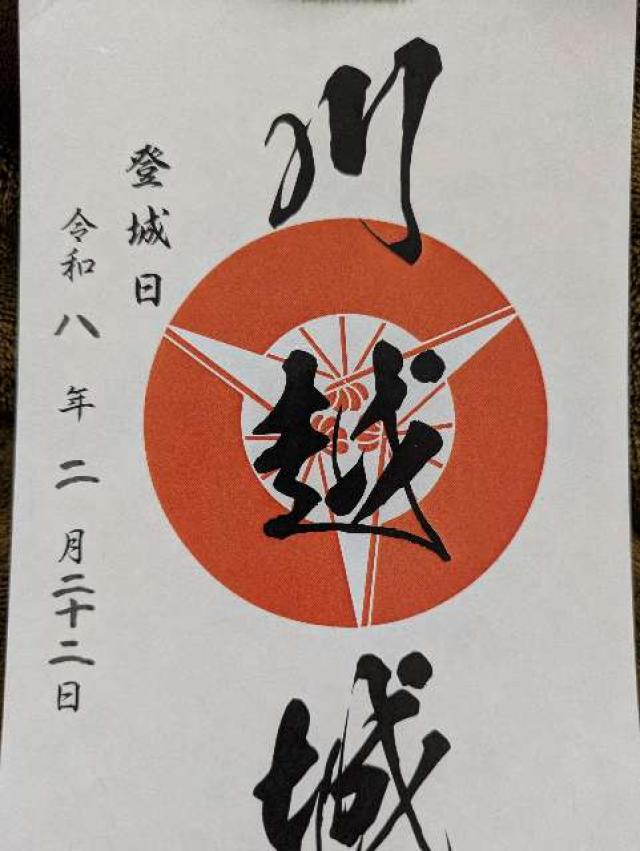 川越城
登城日
令和八年二月二十二日